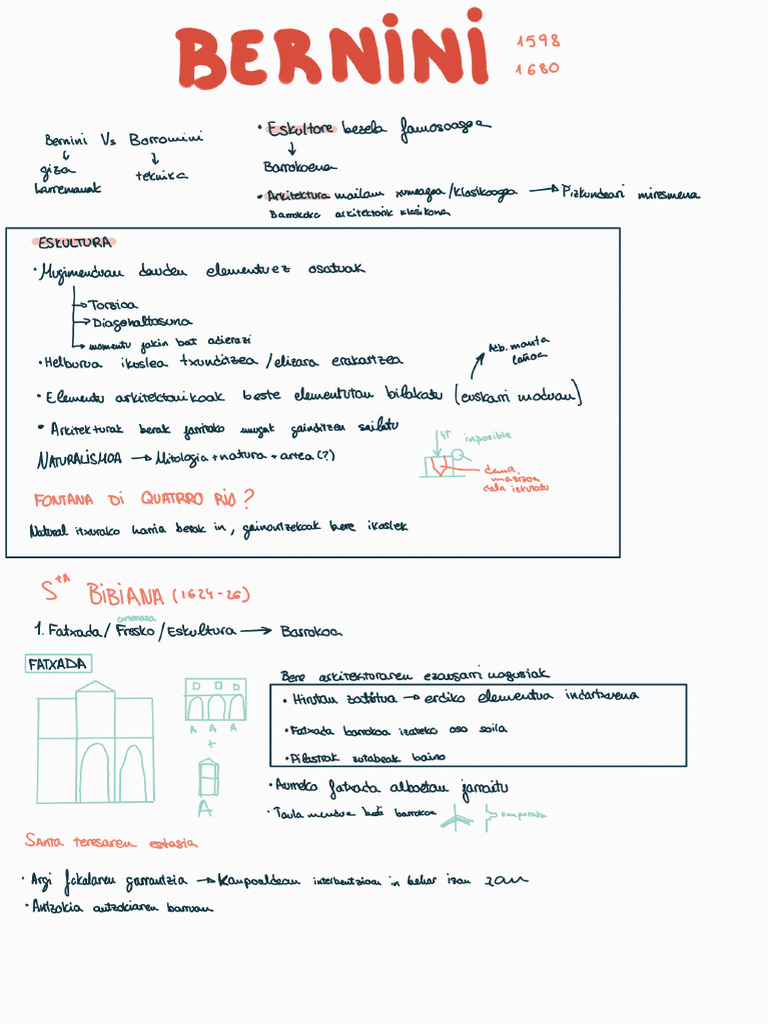 BERNINI
1598
1680
Bernini Vs Borromini
giza harremanak
teknika
• Eskultore bezela famosoagoa
Barrokoena
• Arkitektura mailan xumeagoa/klasikoagoa → Pizkundeari miresmena
Barrokoko arkitektorik klasikona
ESKULTURA
• Mugimenduan dauden elementuez osatuak
→ Torzioa
→ Diagonaltasuna
→ momentu jakin bat adierazi
• Helburua ikuslea txunditzea /elizara erakartzea
• Elementu arkitektonikoak beste elementutan bilakatu (euskarri moduan)
Adb. manta
• Arkitekturak berak jarritako mugak gainditzen saiatu
NATURALISMOA → Mitologia + natura + artea (?)
ST
inposible
dena
dala izkutatu
FONTANA DI QUATRRO RIO?
Natural itxurako harria berak in, gainontzekoak bere ikaslek
STA BIBIANA (1624-26)
cortonana
1. Fatxada/ Fresko /Eskultura → Barrokoa
FATXADA
A A A
+
A
Bere arkitekturaren ezaugarri nagusiak
• Hirutan zatitua → erdiko elementua indartxuena
• Fatxada barrokoa izateko oso soila
• Pilastrak zutabeak baino
• Aurreko fatxada alboetan jarraitu
• Taula mendua beti barrokoa
kanporaka
Santa teresaren estasia
• Argi fokalaren garrantzia → Kanpoaldean interbentzioan in behar izan zan
• Antzokia antzokiaren barruan